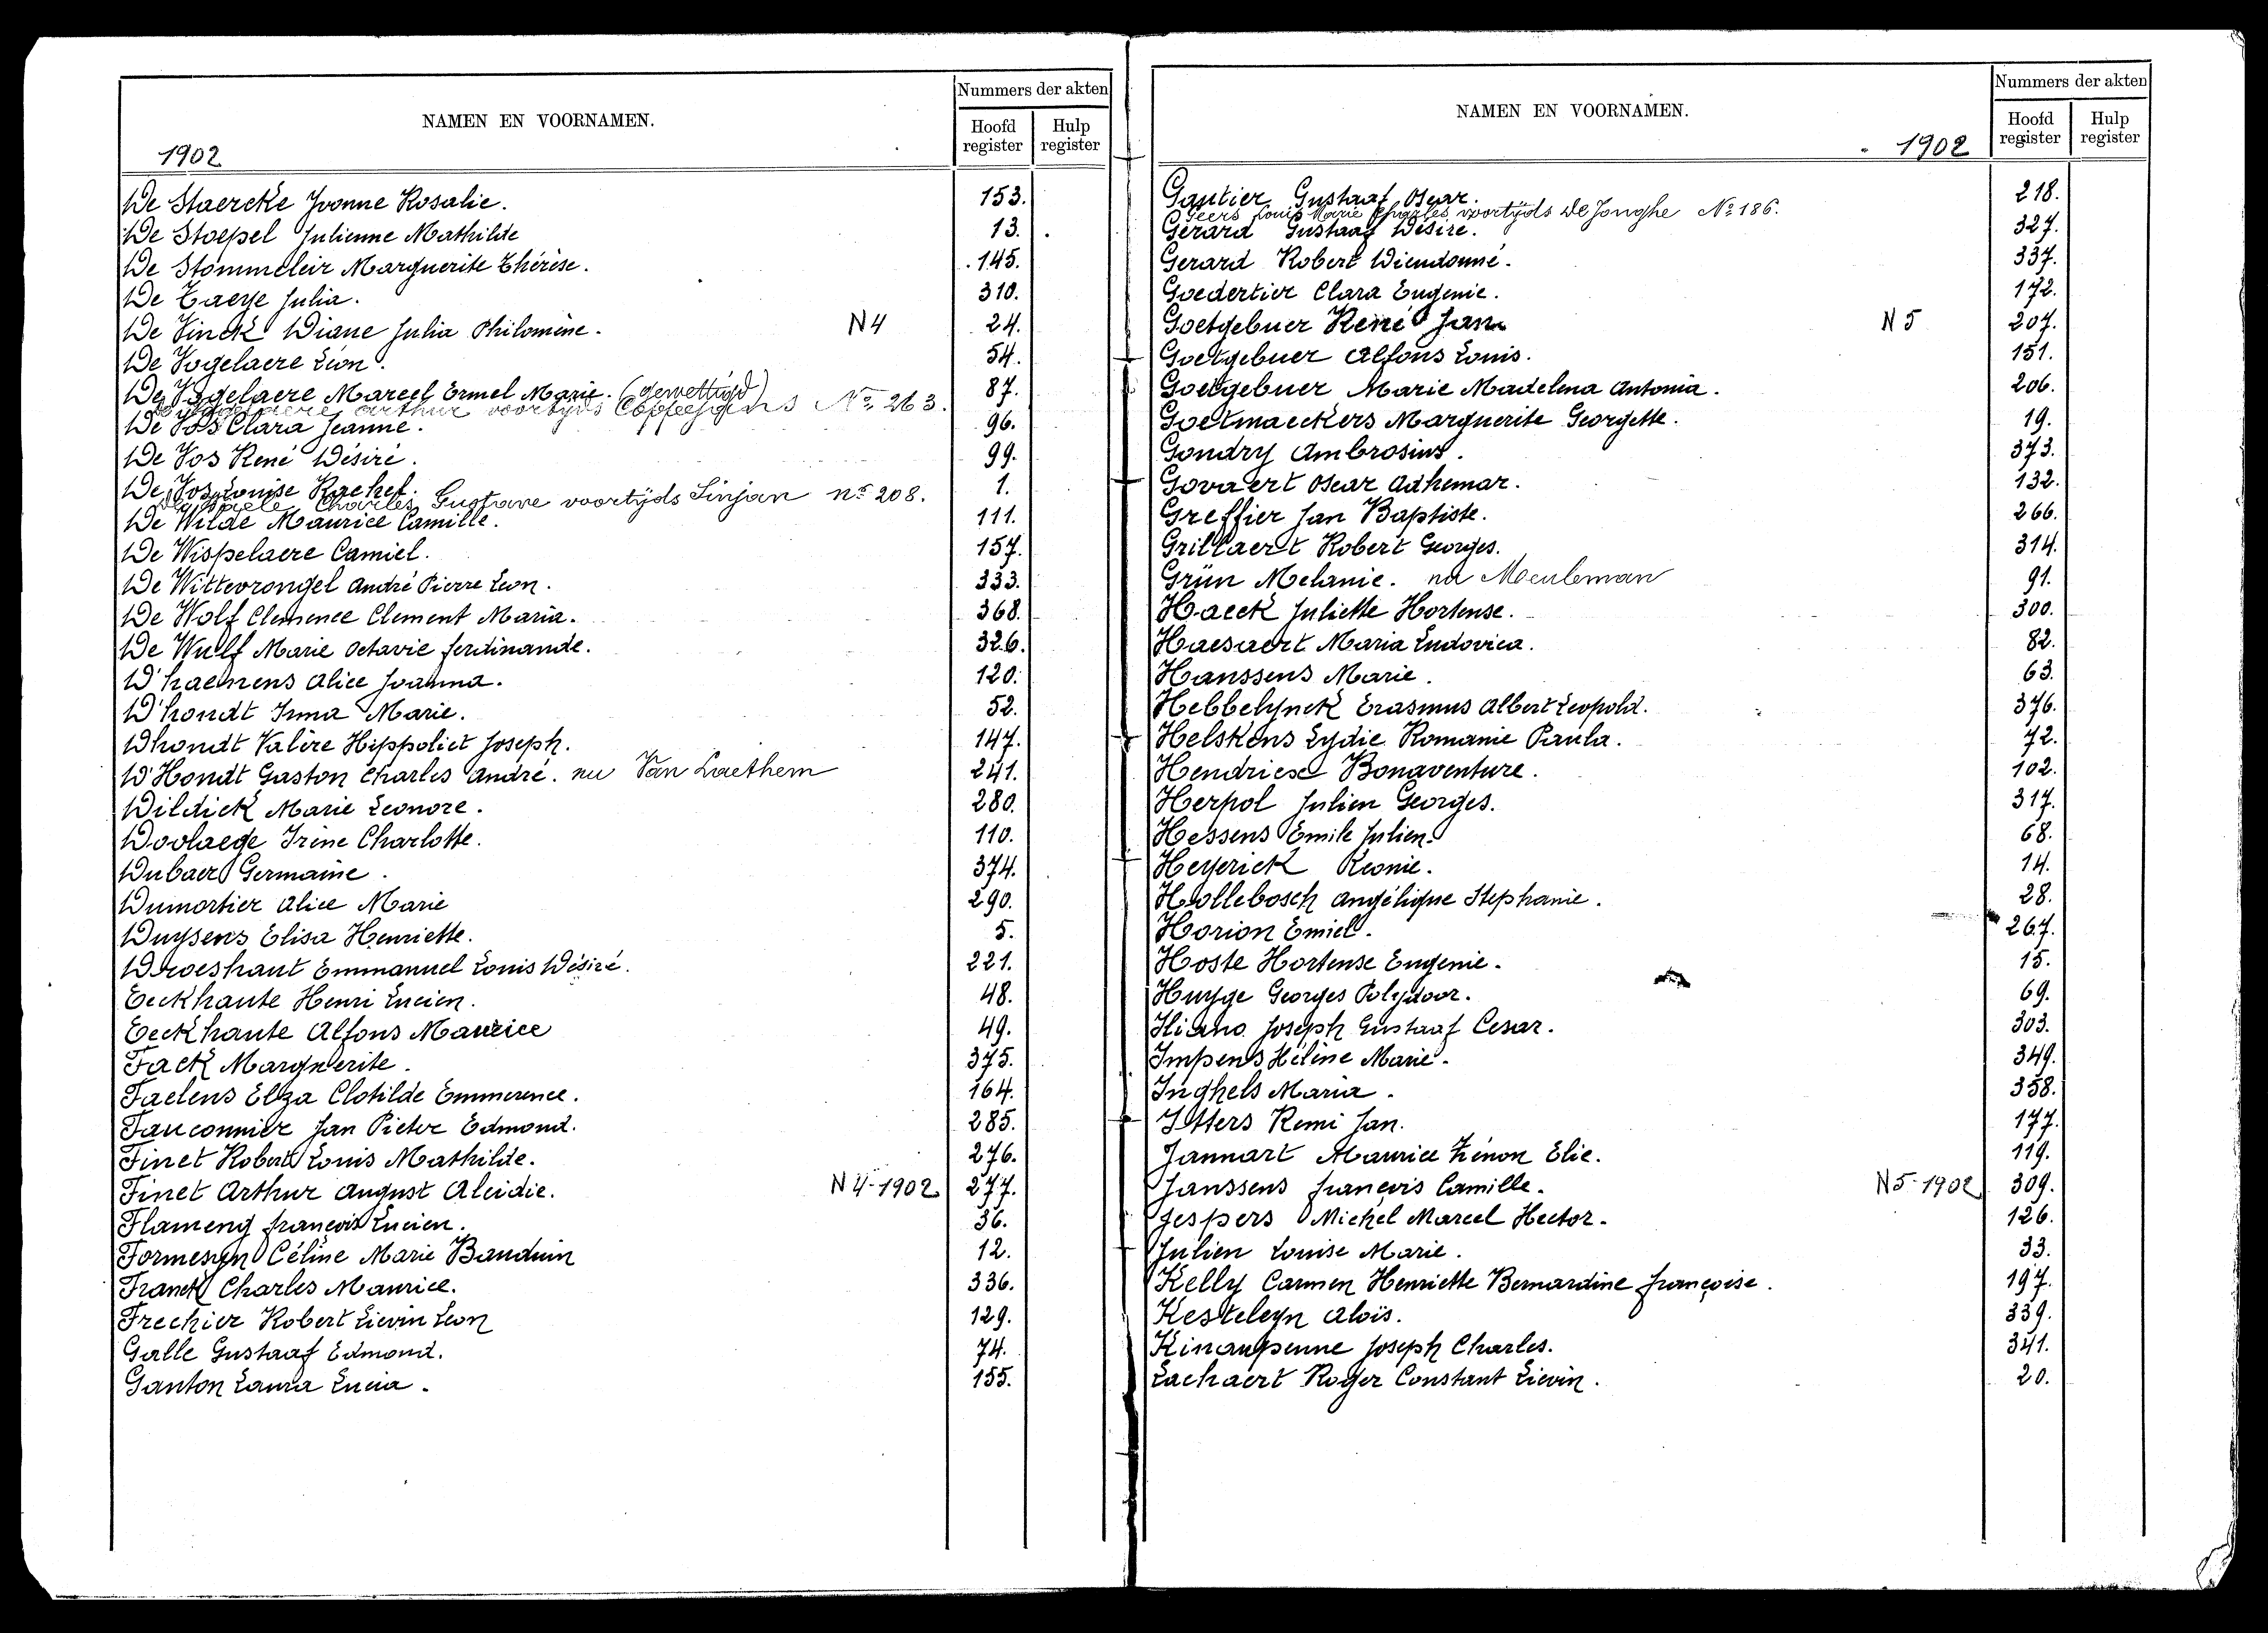 NAMEN EN VOORNAMEN.
Nummers der akten
Hoofd register
Hulp register
1902
De Staercke Yvonne Rosalie. 153.
De Stoepel Julienne Mathilde 13.
De Stommeleir Marguerite Thérèse. 145.
De Taeye Julia. 310.
De Vinck Diane Julia Philomène. N4 24.
De Vogelaere Léon. 54.
De Vogelaere Marcel Ermel Marie. (gewettigd) 87.
De Vogelaere Arthur voortijds Coppejans N° 263.
De Vos Clara Jeanne. 96.
De Vos René Désiré. 99.
De Vos Louise Rachel. 1.
Charles Gustave voortijds Sinjan n° 208.
De Wilde Maurice Camille. 111.
De Wispelaere Camiel. 157.
De Wittevrongel André Pierre Leon. 333.
De Wolf Clemence Clement Maria. 368.
De Wulf Marie Octavie Ferdinande. 326.
D'haenens Alice Joanna. 120.
D'hondt Irma Marie. 52.
Dhondt Valère Hippoliet Joseph. 147.
D'Hondt Gaston Charles André. nu Van Laethem 241.
Dildick Marie Leonore. 280.
Doolaege Irène Charlotte. 110.
Dubaer Germaine. 374.
Dumortier Alice Marie 290.
Duysens Elisa Henriette. 5.
Droeshaut Emmanuel Louis Désiré. 221.
Eeckhaute Henri Lucien. 48.
Eeckhaute Alfons Maurice 49.
Fack Marguerite. 375.
Faelens Elza Clotilde Emmerence. 164.
Fauconnier Jan Pieter Edmond. 285.
Finet Robert Louis Mathilde. 276.
Finet Arthur August Aleidie. N4-1902 277.
Flameng François Lucien. 36.
Formesyn Céline Marie Bauduin 12.
Franck Charles Maurice. 336.
Frechier Robert Lievin Leon 129.
Galle Gustaaf Edmond. 74.
Ganton Laura Lucia. 155.
NAMEN EN VOORNAMEN.
Nummers der akten
Hoofd register
Hulp register
1902
Gautier Gustaaf Oscar. 218.
Geers Louis Marie Charles voortijds De Jonghe N° 186.
Gerard Gustaaf Désiré. 327.
Gerard Robert Diendonné. 337.
Goedertier Clara Eugenie. 172.
Goetgebuer René Jan N5 207.
Goetgebuer Alfons Louis. 151.
Goetgebuer Marie Madelena Antonia. 206.
Goetmaeckers Marguerite Georgette. 19.
Gondry Ambrosius. 373.
Govaert Oscar Adhemar. 132.
Greffier Jan Baptiste. 266.
Grillaert Robert Georges. 314.
Grün Melanie. nu Meuleman 91.
Haeck Juliette Hortense. 300.
Haesaert Maria Ludovica. 82.
Hanssens Marie. 63.
Hebbelynck Erasmus Albert Leopold. 376.
Helskens Lydie Romanie Paula. 72.
Hendricx Bonaventure. 102.
Herpol Julien Georges. 317.
Hessens Emile Julien. 68.
Heyerick Leonie. 14.
Hollebosch Angélique Stephanie. 28.
Horion Emiel. 267.
Hoste Hortense Eugenie. 15.
Huyge Georges Polydoor. 69.
Iliano Joseph Gustaaf Cesar. 303.
Impens Hélène Marie. 349.
Inghels Maria. 358.
Itters Remi Jan. 177.
Jannart Maurice Zénon Elie. 119.
Janssens François Camille. N5-1902 309.
Jespers Michel Marcel Hector. 126.
Julien Louise Marie. 33.
Kelly Carmen Henriette Bernardine Françoise. 197.
Kesteleyn Aloïs. 339.
Kinaupenne Joseph Charles. 341.
Lachaert Roger Constant Lievin. 20.